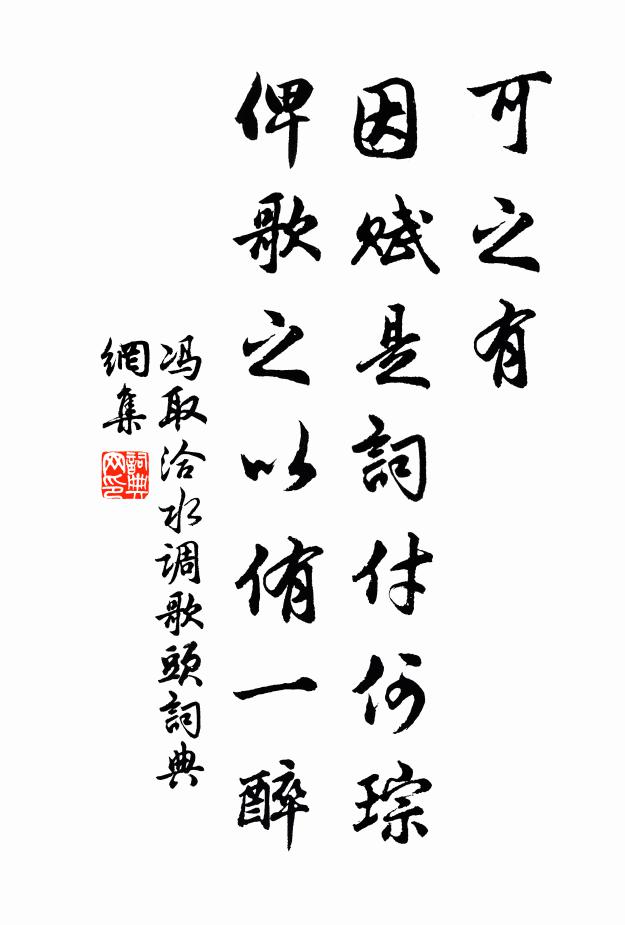 可之有
因赋是詞付何琮
俾歌之以侑一醉
冯取洽水调歌頭詞典
網集
詞典網印